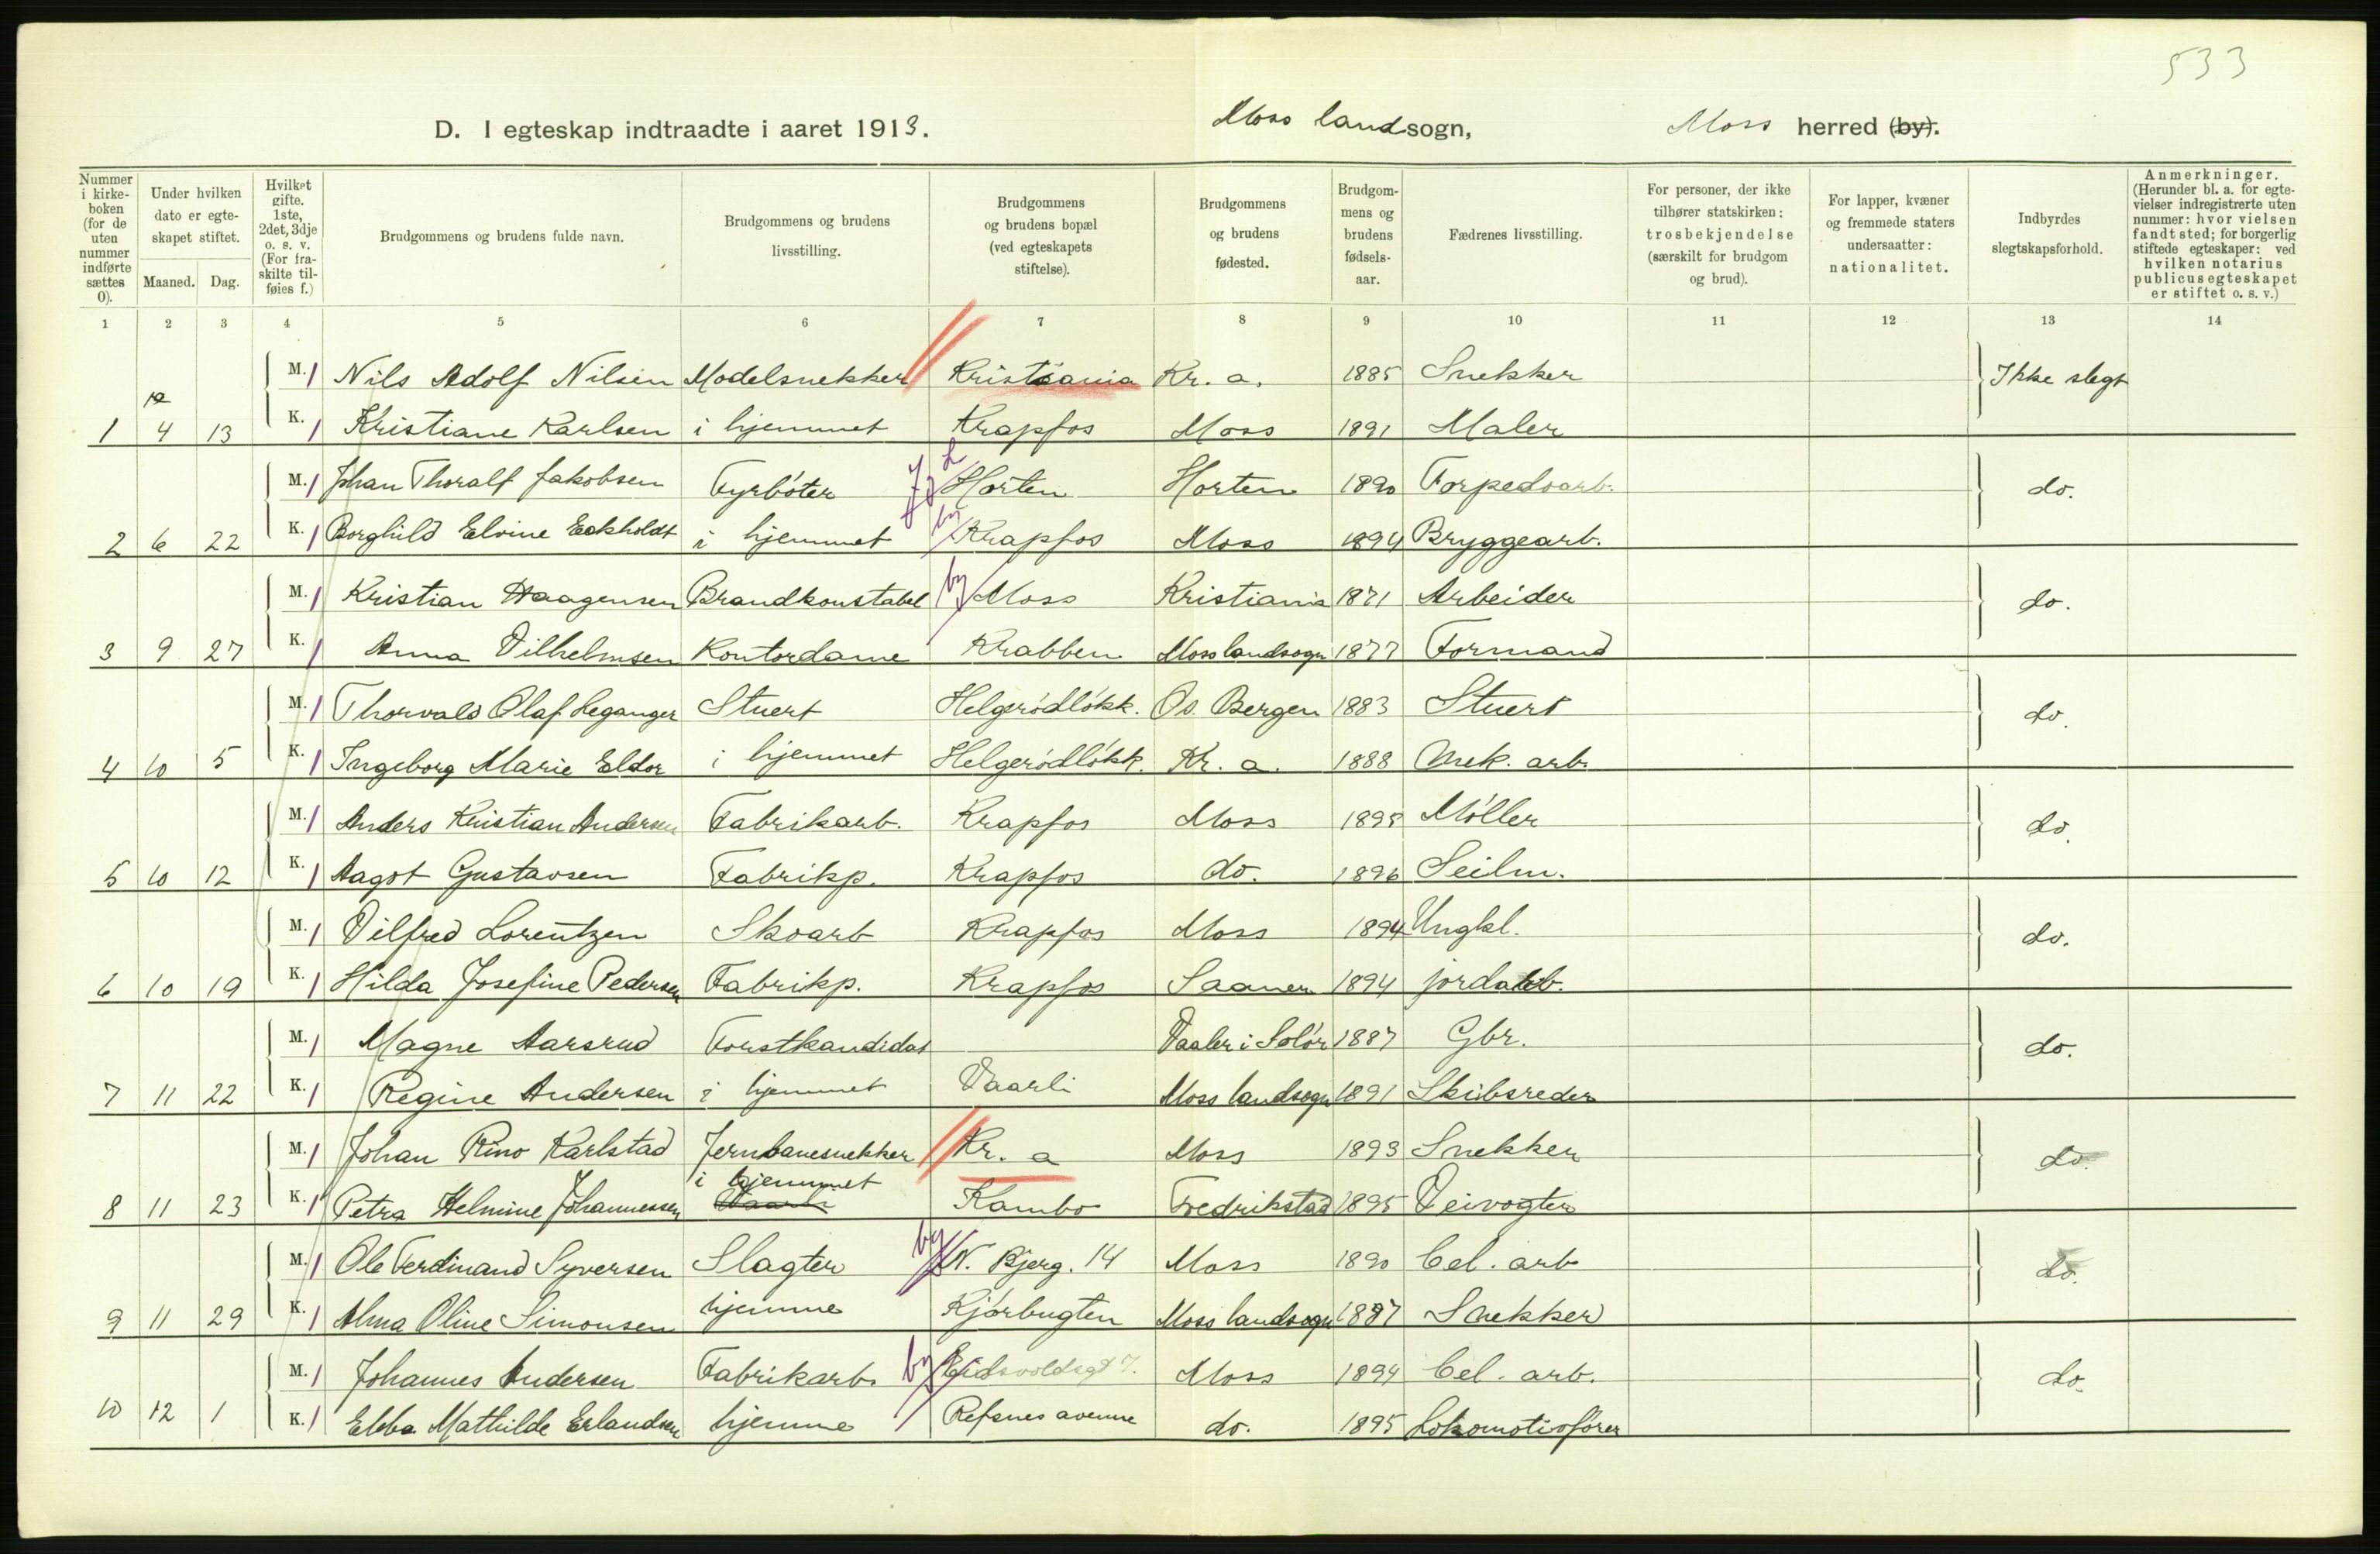 533
D. I egteskap indtraadte i aaret 1913. Moss landsogn, Moss herred (by).
Nummer i kirke-boken (for de uten nummer indførte sættes 0).
Under hvilken dato er egte-skapet stiftet.
Maaned. Dag.
Hvilket gifte. 1ste, 2det, 3dje o. s. v. (For fra-skilte til-føies f.)
Brudgommens og brudens fulde navn.
Brudgommens og brudens livsstilling.
Brudgommens og brudens bopæl (ved egteskapets stiftelse).
Brudgommens og brudens fødested.
Brudgom-mens og brudens fødsels-aar.
Fædrenes livsstilling.
For personer, der ikke tilhører statskirken: trosbekjendelse (særskilt for brudgom og brud).
For lapper, kvæner og fremmede staters undersaatter: nationalitet.
Indbyrdes slegtskapsforhold.
Anmerkninger. (Herunder bl. a. for egte-vielser indregistrerte uten nummer: hvor vielsen fandt sted; for borgerlig stiftede egteskaper: ved hvilken notarius publicus egteskapet er stiftet o. s. v.)
1 2 3 4 5 6 7 8 9 10 11 12 13 14
M. 1 Nils Adolf Nilsen Modelsnekker Kristiania Kr. a. 1885 Snekker Ikke slegt
1 4 13 K. 1 Kristiane Karlsen i hjemmet Krapfos Moss 1891 Maler
M. 1 Johan Thoralf Jakobsen Fyrböter Horten Horten 1890 Torpedoarb. do.
2 6 22 K. 1 Borghild Elvine Eckholdt i hjemmet by Krapfos Moss 1894 Bryggearb.
M. 1 Kristian Haagensen Brandkonstabel by Moss Kristiania 1871 Arbeider do.
3 9 27 K. 1 Anna Vilhelmsen Kontordame Krabben Moss landsogn 1877 Formand
M. 1 Thorvald Olaf Leganger Stuert Helgerödlökk. Os. Bergen 1883 Stuert do.
4 10 5 K. 1 Ingeborg Marie Eldor i hjemmet Helgerödlökk. Kr. a. 1888 Mek. arb.
M. 1 Anders Kristian Andersen Fabrikarb. Krapfos Moss 1895 Möller do.
5 10 12 K. 1 Aagot Gustavsen Fabrikp. Krapfos do. 1896 Seilm.
M. 1 Vilfred Lorentzen Skoarb Krapfos Moss 1894 Ungkl. do.
6 10 19 K. 1 Hilda Josefine Pedersen Fabrikp. Krapfos Saaner 1894 jordarb.
M. 1 Magne Aarsrud Forstkandidat Vaaler i Solör 1887 Gbr. do.
7 11 22 K. 1 Regine Andersen i hjemmet Vaarli Moss landsogn 1891 Skibsreder
M. 1 Johan Rino Karlstad Jernbanesnekker Kr. a Moss 1893 Snekker do.
8 11 23 K. 1 Petra Helmine Johannessen i hjemmet Vaarli Kambo Fredrikstad 1895 Veivogter
M. 1 Ole Ferdinand Syversen Slagter by N. Bjerg. 14 Moss 1890 Cel. arb do.
9 11 29 K. 1 Alma Oline Simonsen hjemme Kjörbugten Moss landsogn 1887 Snekker
M. 1 Johannes Andersen Fabrikarb. by Eidsvoldsgt 7. Moss 1894 Cel. arb. do.
10 12 1 K. 1 Ebba Mathilde Erlandsen hjemme Refsnes avenue do. 1895 Lokomotivförer